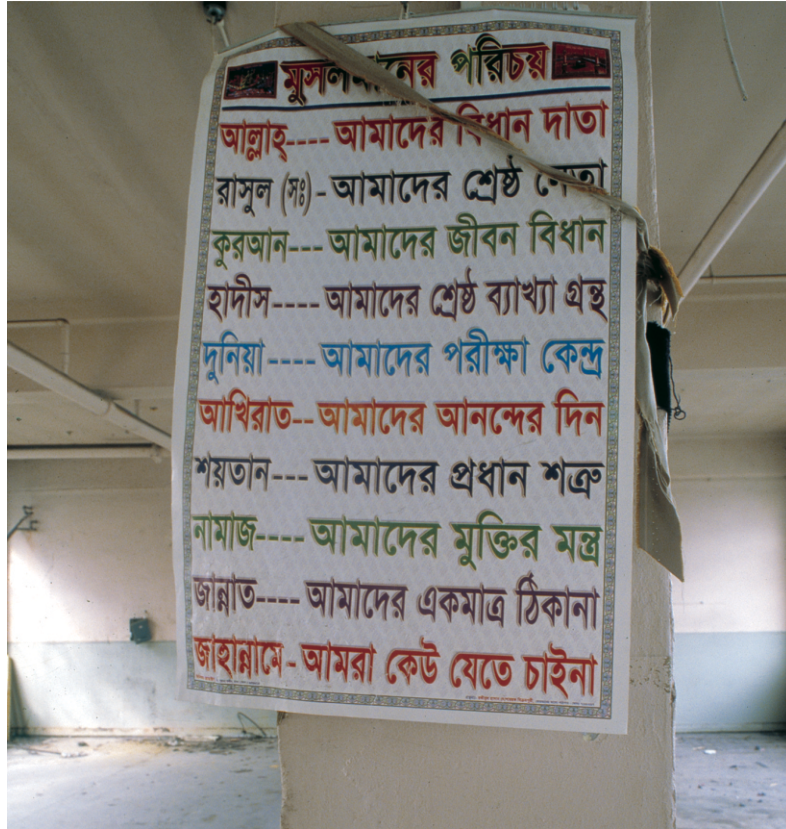 মুসলমানের পরিচয়
আল্লাহ্---- আমাদের বিধান দাতা
রাসুল (সঃ) - আমাদের শ্রেষ্ঠ নেতা
কুরআন--- আমাদের জীবন বিধান
হাদীস---- আমাদের শ্রেষ্ঠ ব্যাখ্যা গ্রন্থ
দুনিয়া---- আমাদের পরীক্ষা কেন্দ্র
আখিরাত-- আমাদের আনন্দের দিন
শয়তান--- আমাদের প্রধান শত্রু
নামাজ---- আমাদের মুক্তির মন্ত্র
জান্নাত---- আমাদের একমাত্র ঠিকানা
জাহান্নামে - আমরা কেউ যেতে চাইনা